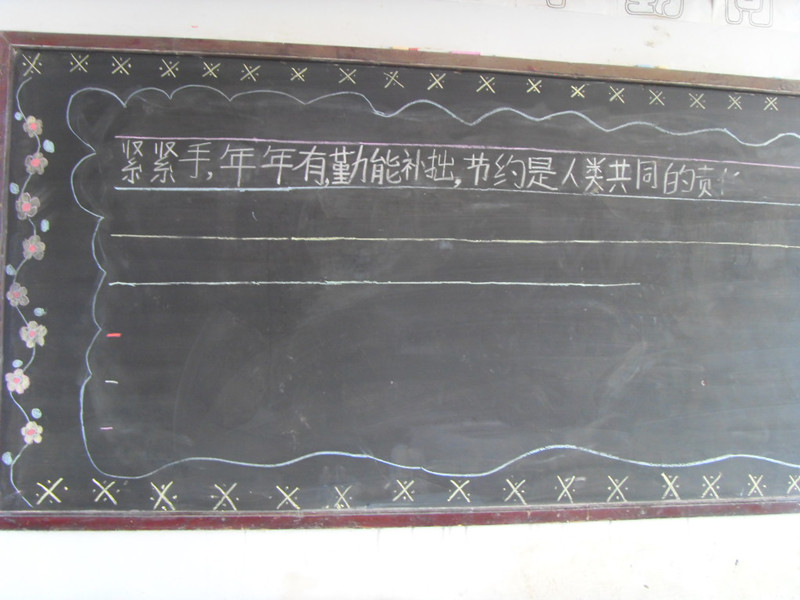 紧紧手,年年有,勤能补拙,节约是人类共同的责